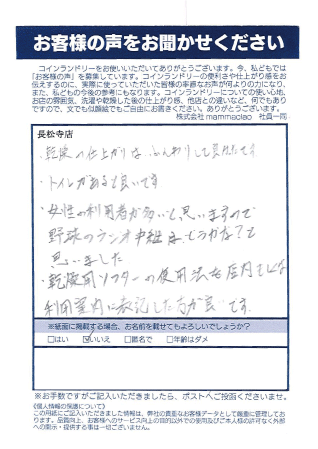 お客様の声をお聞かせください
コインランドリーをお使いいただいてありがとうございます。今、私どもでは
「お客様の声」を募集しています。コインランドリーの便利さや仕上がり感をお
伝えするのに、実際に使っていただいた皆様の率直なお声が何よりの力になり、
また、私どもの今後の参考にもなります。コインランドリーについての使い心地、
お店の雰囲気、洗濯や乾燥した後の仕上がり感、他店との違いなど、何でもあり
ますので、文でも似顔絵でもご自由にお書きください。ありがとうございます。
株式会社 mammaciao 社員一同
長松寺店
・乾燥の仕上がりは ふんわりして良かったです
・トイレがあると良いです
・女性の利用者が多いと思いますので
野球のラジオ中継はどうかな?と
思いました
・乾燥用ソフターの使用法を店内
利用案内に表記した方が良いです。
※紙面に掲載する場合、お名前を載せてもよろしいでしょうか?
□はい ☑いいえ □匿名で □年齢はダメ
※お手数ですがご記入いただきましたら、ポストへご投函くださいませ。
《個人情報の保護について》
この用紙にご記入いただきました情報は、弊社の貴重なお客様データとして厳重に管理してお
ります。品質向上、お客様へのサービス向上の目的以外での使用及びご本人様の許可なく外部
への開示・提供する事は一切ございません。